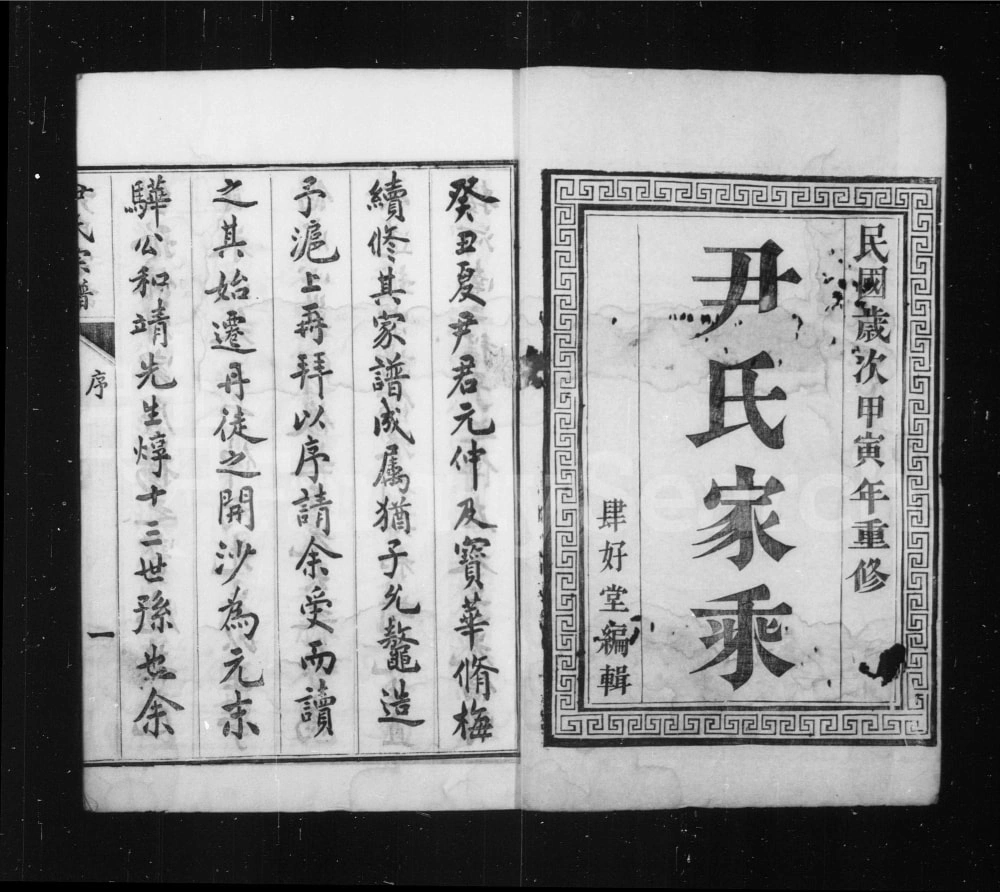 民國歲次甲寅年重修
尹氏家乘
肆好堂編輯
癸丑夏尹君元仲及寶華脩梅
續修其家譜成属猶子允鼇造
予滬上再拜以序請余受而讀
之其始遷丹徒之開沙為元末
驊公和靖先生焞十三世孫也余
尹氏宗譜
序
一